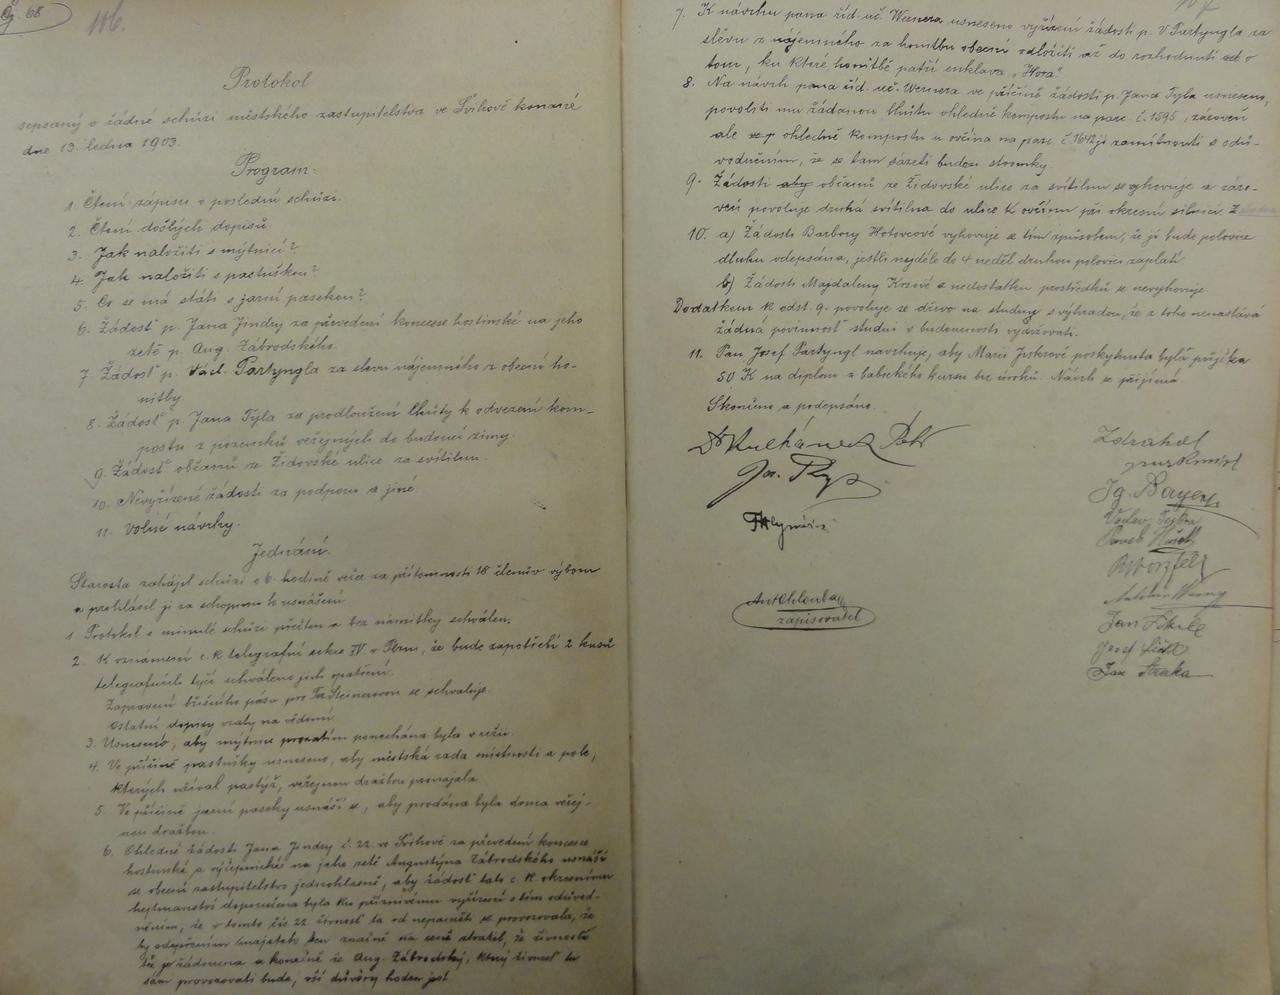 Čj. 68
106.
Protokol
sepsaný o řádné schůzi městského zastupitelstva ve Švihově konané
dne 13. ledna 1903.
Program:
1 Čtení zápisu o poslední schůzi.
2. Čtení došlých dopisů.
3. Jak naložiti s mýtnicí?
4. Jak naložiti s pastuškou?
5. Co se má státi s jarní pasekou?
6. Žádosť p. Jana Jindry za převedení koncesse hostinské na jeho
zetě p. Aug. Zábrodského.
7 Žádosť p. Václ. Partyngla za slevu nájemného z obecní ho-
nitby.
8. Žádosť p. Jana Tyla za prodloužení lhůty k odvezení kom-
postu z pozemků veřejných do budoucí zimy.
9. Žádosť občanů ze Židovské ulice za svítilnu.
10. Nevyřízené žádosti za podporu a jiné.
11. Volné návrhy.
Jednání.
Starosta zahájil schůzi o 6. hodině večer za přítomnosti 18 členův výboru
a prohlásil ji za schopnou k usnášení.
1 Protokol o minulé schůzi přečten a bez námitky schválen.
2. K oznámení c. k. telegrafní sekce IV v Plzni, že bude zapotřebí 2 kusů
telegrafních tyčí schváleno jich opatření.
Zapravení břišního pásu pro Ter. Steinerovou se schvaluje.
Ostatní dopisy vzaty na vědomí.
3. Usneseno, aby mýtnice prozatím ponechána byla v režii.
4. Ve příčině pastušky usneseno, aby městská rada místnosti a pole,
kterých užíval pastýř, veřejnou dražbou pronajala.
5. Ve příčině jarní paseky usnáší se, aby prodána byla doma veřej-
nou dražbou.
6. Ohledně žádosti Jana Jindry č. 22. ve Švihově za převedení koncesse
hostinské a výčepnické na jeho zetě Augustýna Zábrodského usnáší
se obecní zastupitelstvo jednohlasně, aby žádosť tato c. k. okresnímu
hejtmanství doporučena byla ku příznivému vyřízení s tím odůvod-
něním, že v tomto čís. 22. živnosť ta od nepaměti se provozovala, že
by odepřením majetek ten značně na ceně ztratil, že živnosť
tu je žádoucna a konečně že Aug. Zábrodský, který živnosť tu
sám provozovati bude, vší důvěry hoden jest.
7. K návrhu pana říd. uč. Wernera usneseno vyřízení žádosti p. V. Partyngla za
slevu z nájemného za honitbu obecní odložiti až do rozhodnutí o
tom, ku které honitbě patří enklava „Hora“.
8. Na návrh pana říd. uč. Wernera ve příčině žádosti p. Jana Tyla usneseno,
povoliti mu žádanou lhůtu ohledně kompostu na parc. č. 1595, zároveň
ale ohledně kompostu u ovčína na parc. č. 1642 ji zamítnouti s odů-
vodněním, že se tam sázeti budou stromky.
9. Žádosti aby občanů ze Židovské ulice za svítilnu se vyhovuje a záro-
veň povoluje druhá svítilna do ulice k ovčínu při okresní silnici.
10. a) Žádosti Barbory Hotovcové vyhovuje se tím způsobem, že jí bude polovice
dluhu odepsána, jestli nejdéle do 4 neděl druhou polovici zaplatí.
b) Žádosti Majdaleny Krsové z nedostatku prostředků se nevyhovuje.
Dodatkem k odst. 9. povoluje se dřevo na studny s výhradou, že z toho nenastává
žádná povinnosť studni v budoucnosti vydržovati.
11. Pan Josef Partyngl navrhuje, aby Marii Jiskrové poskytnuta byla půjčka
50 K na diplom z babického kursu bez úroků. Návrh se přijímá.
Skončeno a podepsáno.
Dr Kulhánek
Jos.
Ant. Chloubal
zapisovatel
Zdrahal
Ig. Bayer
Václav
Antonín
Jan
Josef
Jan Straka